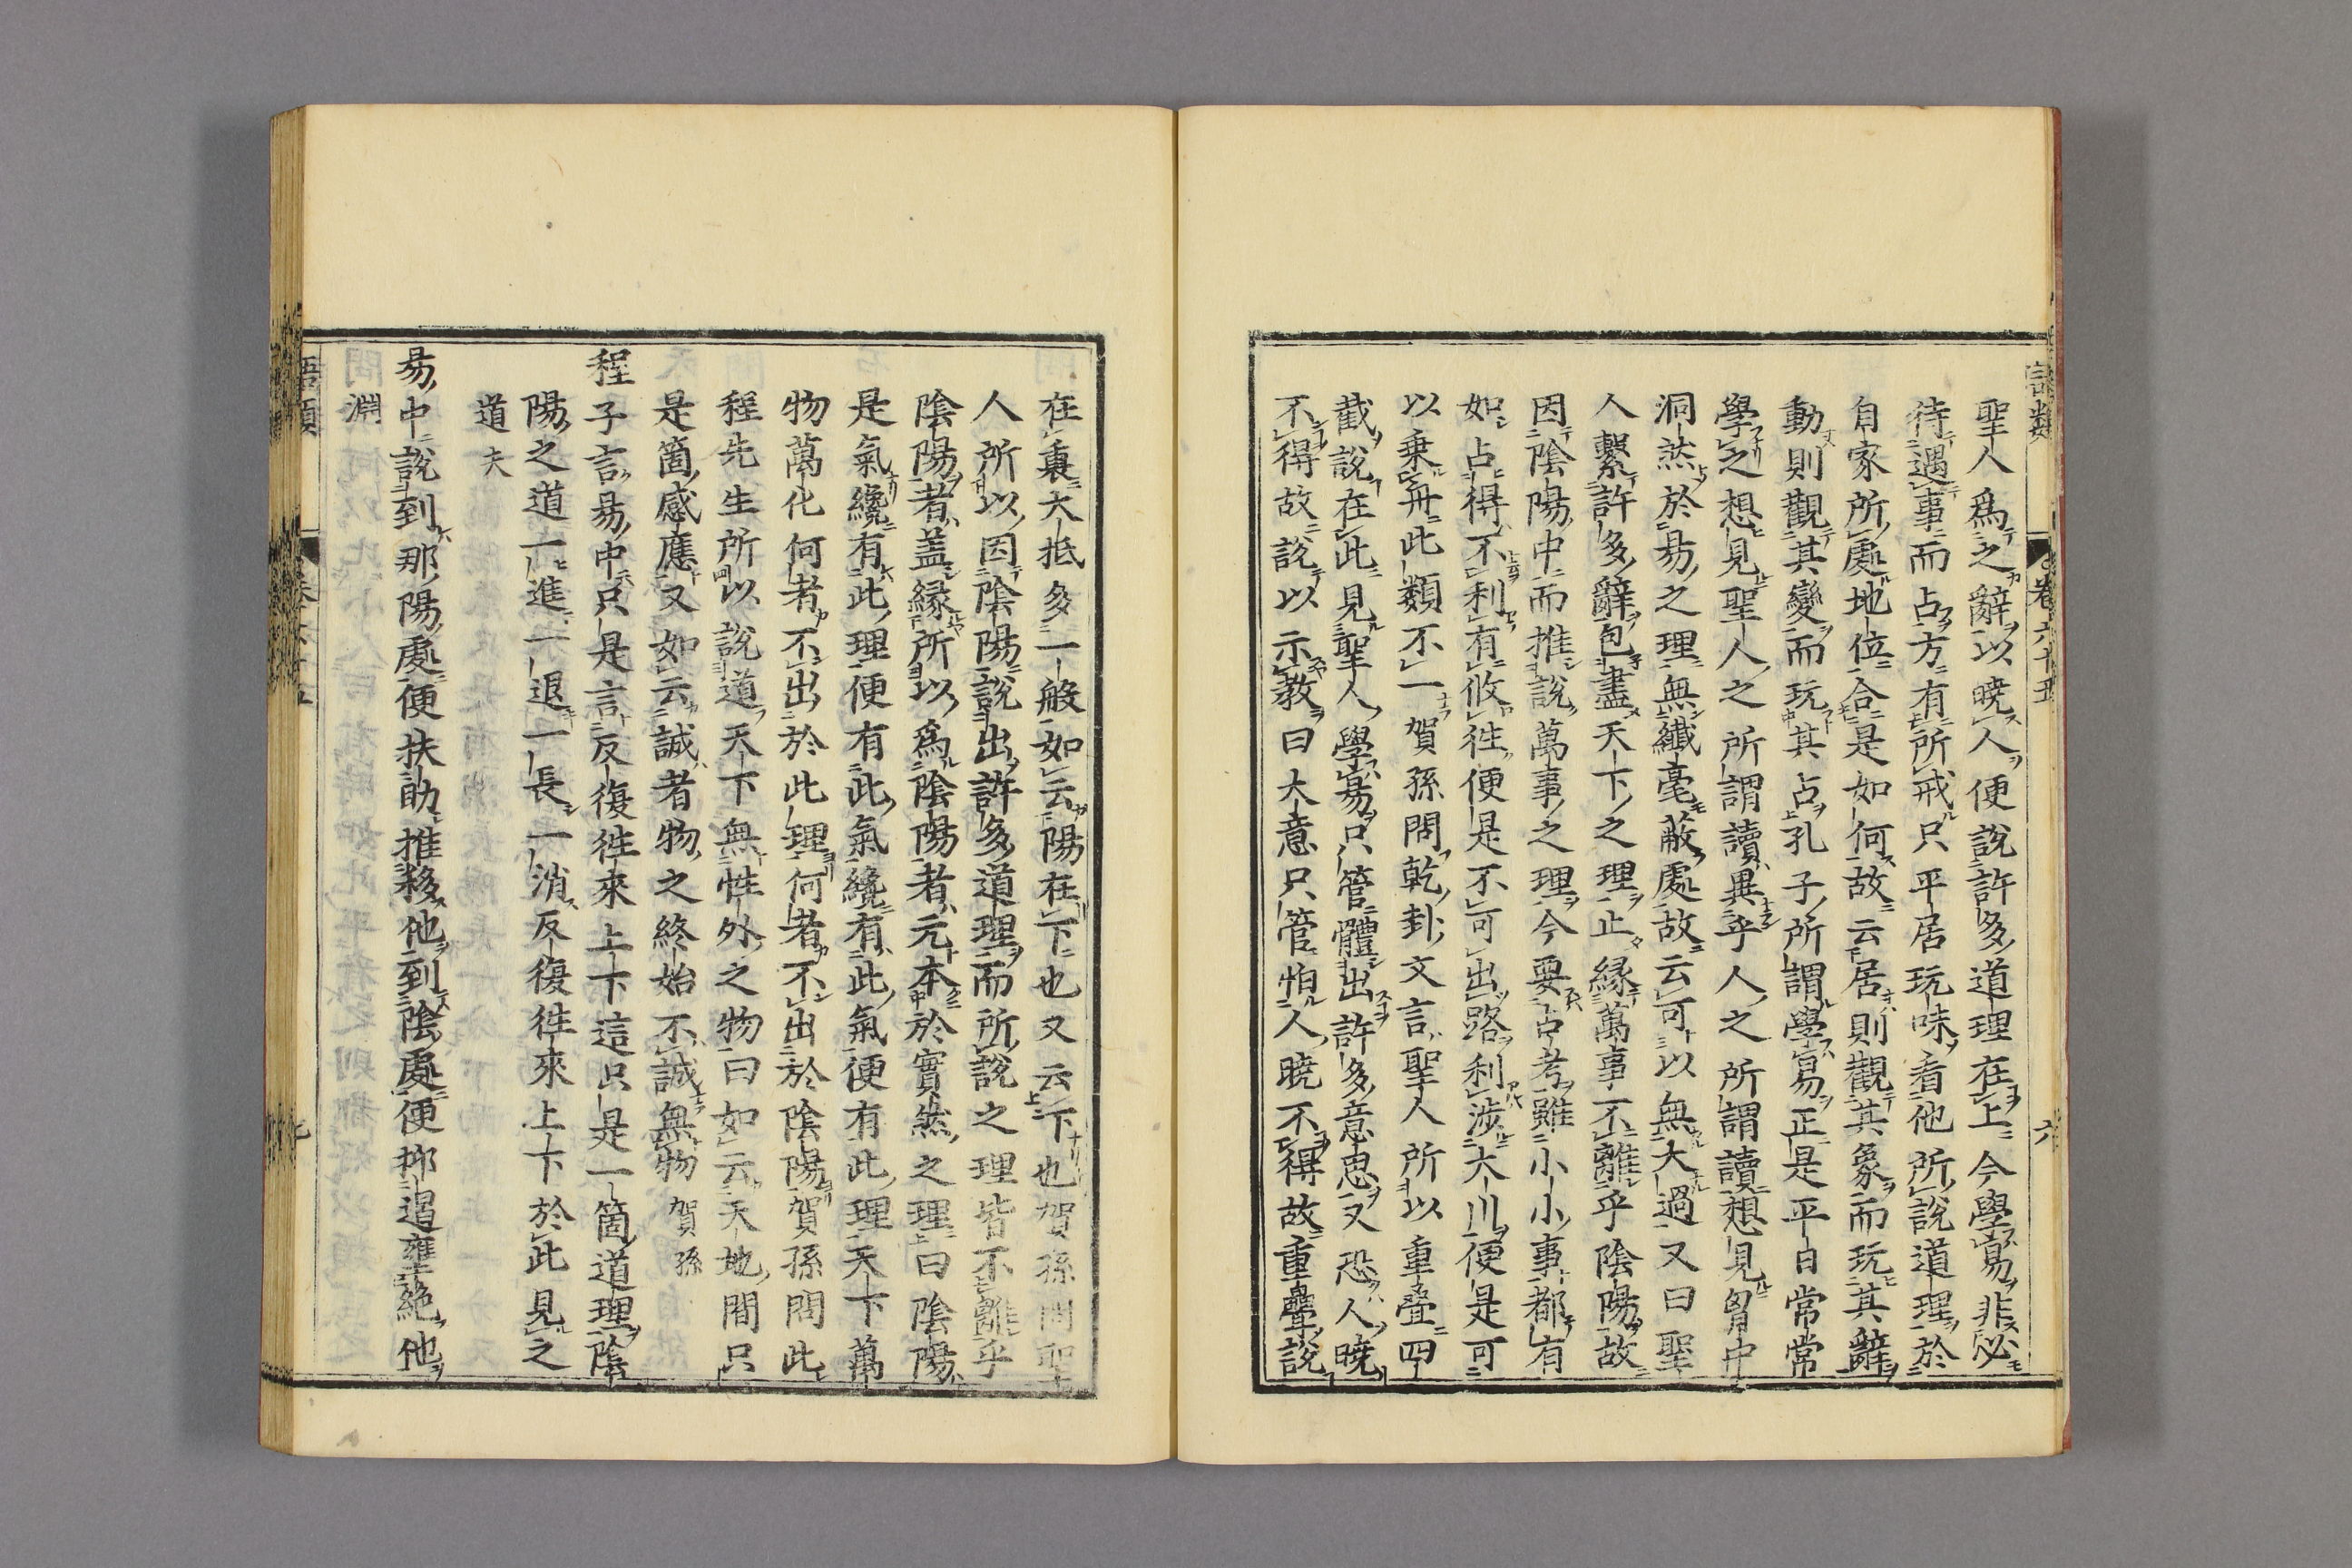 語類
卷六十五
六
聖人爲之辭以曉人便說許多道理在上今學易非必
待遇事而占方有所戒只平居玩味看他所說道理於
自家所處地位合是如何故云居則觀其象而玩其辭
動則觀其變而玩其占孔子所謂學易正是平日常常
學之想見聖人之所謂讀異乎人之所謂讀想見胷中
洞然於易之理無纖毫蔽處故云可以無大過又曰聖
人繫許多辭包盡天下之理止緣萬事不離乎陰陽故
因陰陽中而推說萬事之理今要占考雖小小事都有
如占得不利有攸徃便是不可出路利涉大川便是可
以乗舟此類不一賀孫問乾卦文言聖人所以重疊四
截說在此見聖人學易只管體出許多意思又恐人曉
不得故說以示教曰大意只管怕人曉不得故重疊說
在裏大抵多一般如云陽在下也又云下也賀孫問聖
人所以因陰陽說出許多道理而所說之理皆不離乎
陰陽者蓋緣所以爲陰陽者元本於實然之理曰陰陽
是氣纔有此理便有此氣纔有此氣便有此理天下萬
物萬化何者不出於此理何者不出於陰陽賀孫問此
程先生所以說道天下無性外之物曰如云天地間只
是箇感應又如云誠者物之終始不誠無物賀孫
程子言易中只是言反復徃來上下這只是一箇道理陰
陽之道一進一退一長一消反復徃來上下於此見之
道夫
易中說到那陽處便扶助推移他到陰處便抑遏壅絶他
淵